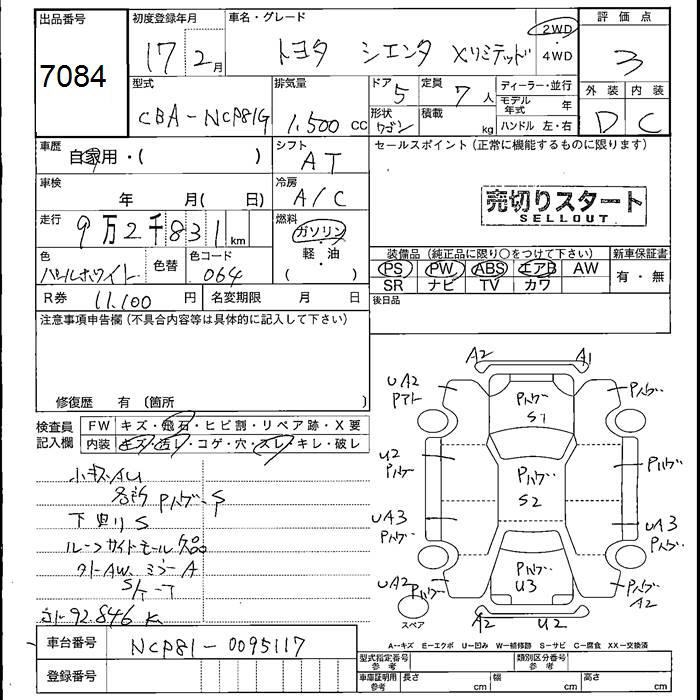 出品番号
7084
初度登録年月
17 2月
車名・グレード
トヨタ シエンタ Xリミテッド
2WD
4WD
評価点
3
型式
CBA-NCP81G
排気量
1,500 CC
ドア 5
形状 ワゴン
定員 7人
積載 kg
ディーラー・並行
モデル年式 年
ハンドル 左・右
外装 内装
D C
車歴
自家用・( )
シフト
AT
セールスポイント(正常に機能するものに限ります)
車検
年 月( 日)
冷房
A/C
売切りスタート
SELLOUT
走行
9万2千831km
燃料
ガソリン
軽・油
( )
色
パールホワイト
色替
色コード
064
装備品(純正品に限り○をつけて下さい)
新車保証書
PS PW ABS エアB AW
有・無
SR ナビ TV カワ
R券 11,100円
名変期限 月 日
後日品
注意事項申告欄(不具合内容等は具体的に記入して下さい)
修復歴 有(箇所 )
検査員
記入欄
FW キズ・飛石・ヒビ割・リペア跡・X要
内装 キズ・汚レ・コゲ・穴・スレ・キレ・破レ
小キズAU
各所 Pハゲ S
下廻り S
ルーフサイドモール
AW ミラーA
92,846 K
A2 A1
UA2
Pハゲ
S1
Pハゲ
U2
Pハゲ
Pハゲ
S2
Pハゲ
UA3
Pハゲ
UA3
Pハゲ
UA2
Pハゲ
Pハゲ
U3
Pハゲ
A2
スペア
A2 U2
A--キズ E--エクボ U--凹み W--補修跡 S--サビ C--腐食 XX--交換済
車台番号
NCP81-0095117
登録番号
型式指定番号
参考
類別区分番号
参考
車庫証明用
参考
長さ cm
幅 cm
高さ cm